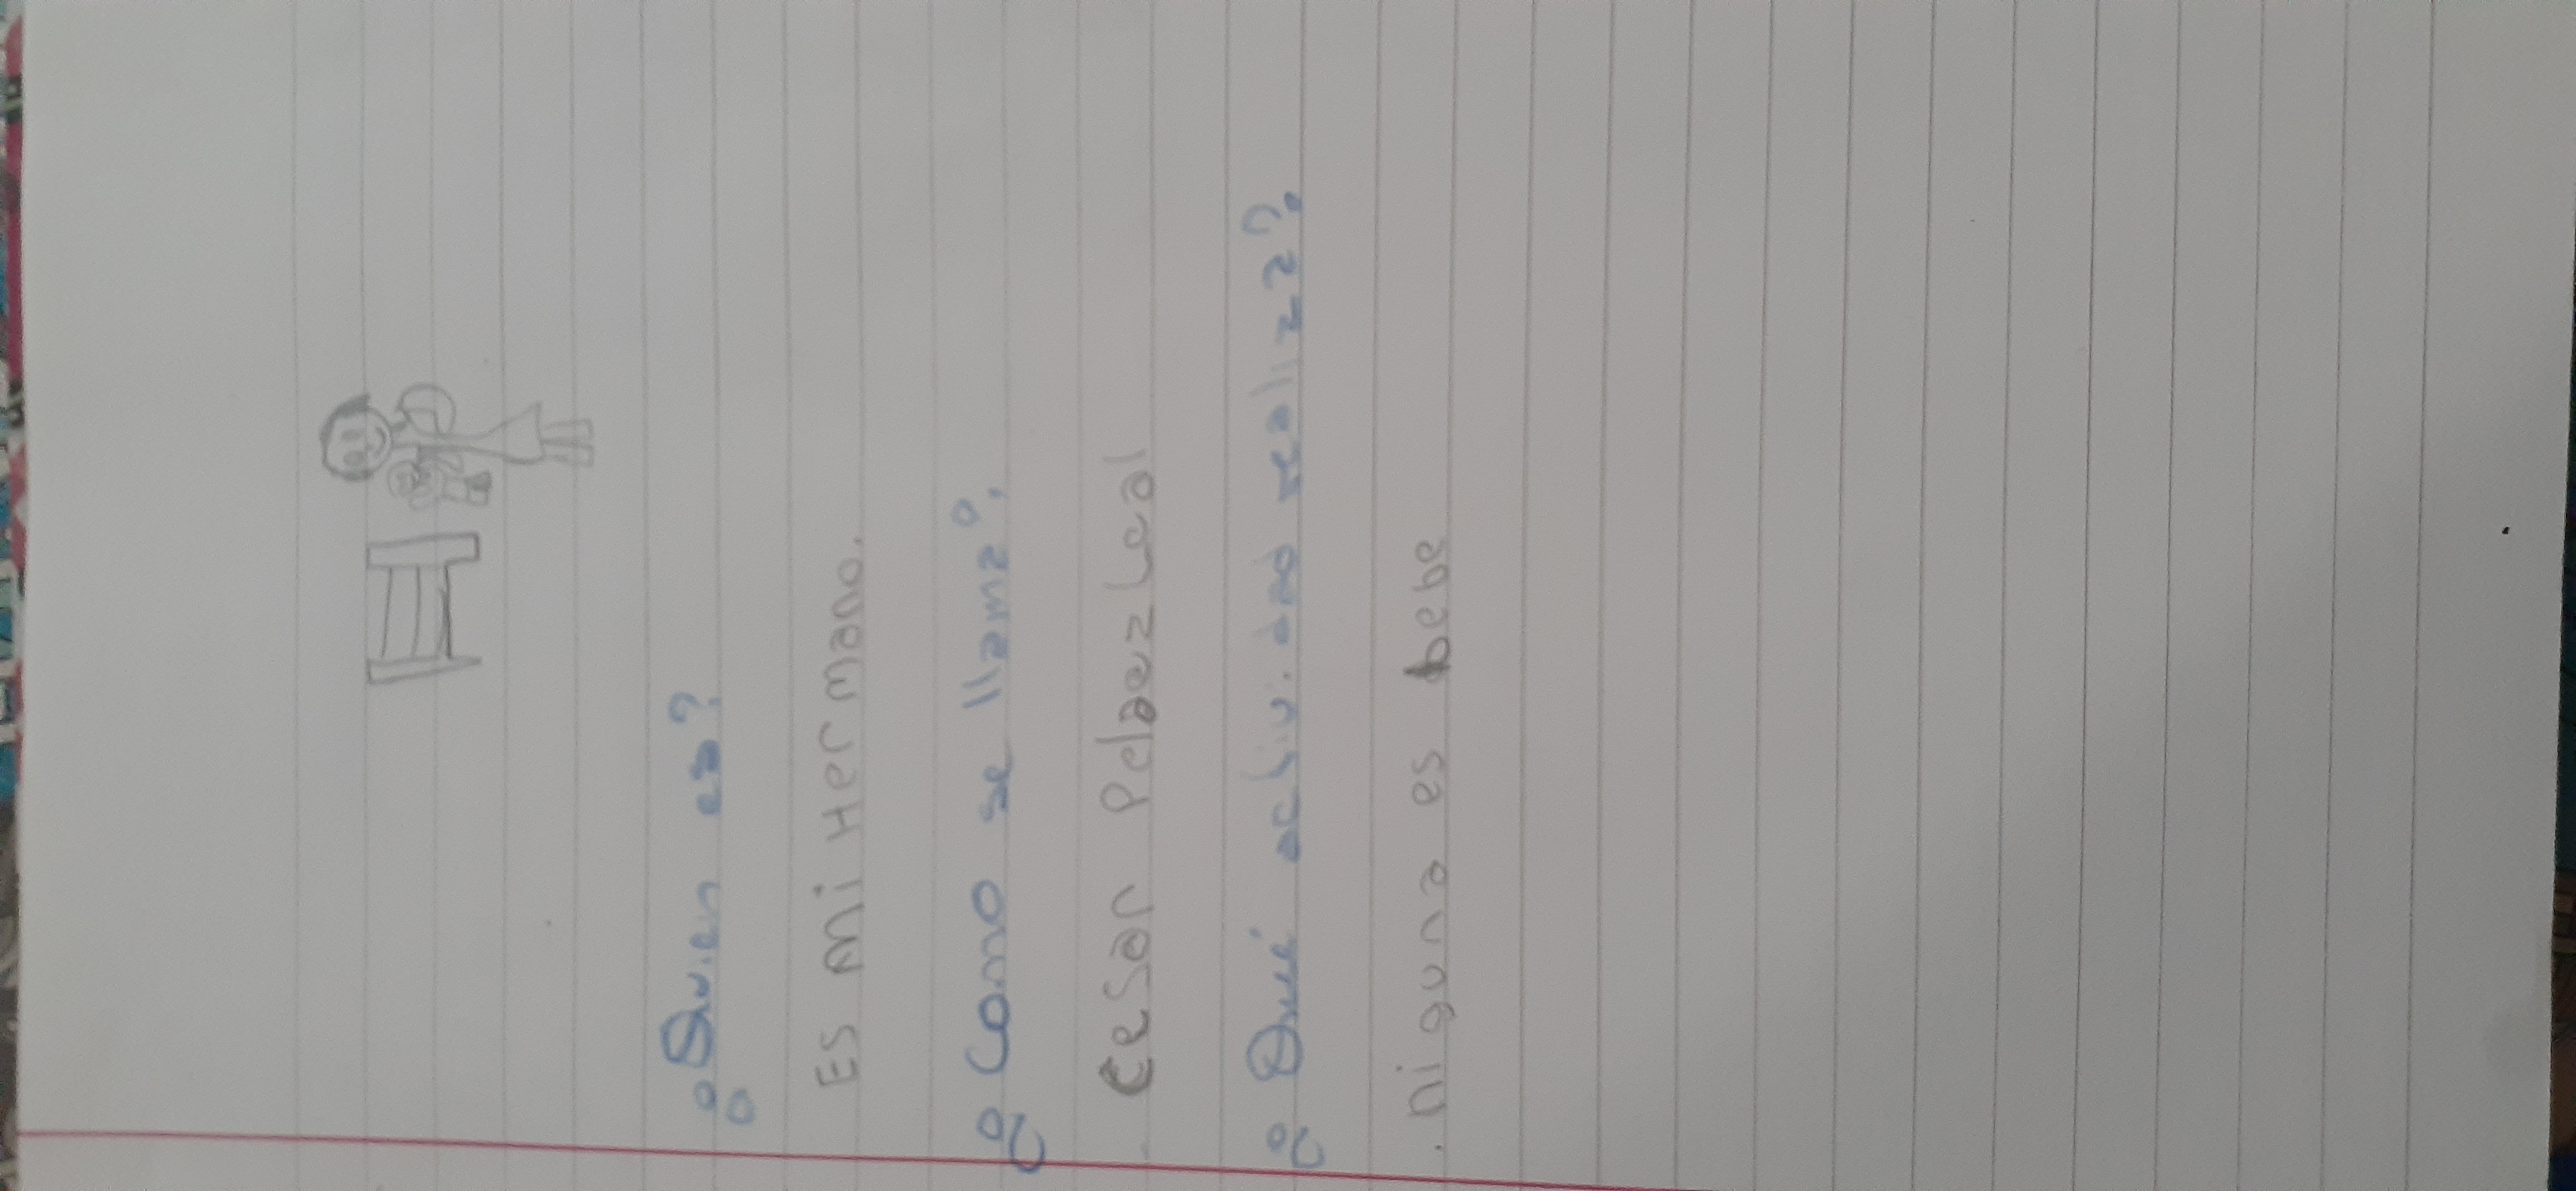 ¿Quien es?
Es mi Hermano.
¿Como se llama?
Cesar Pelaez Leal
¿Qué actividad realiza?
niguna es bebe